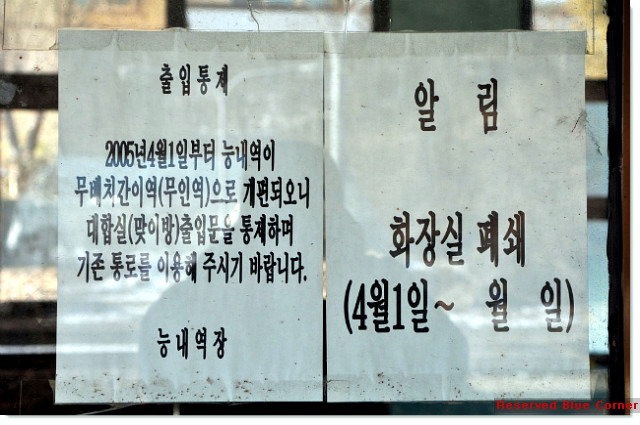 출입통제
2005년4월1일부터 능내역이
무배치간이역(무인역)으로 개편되오니
대합실(맞이방)출입문을 통제하며
기존 통로를 이용해 주시기 바랍니다.
능내역장
알 림
화장실 폐쇄
(4월1일~ 월 일)
Reserved Blue Corner